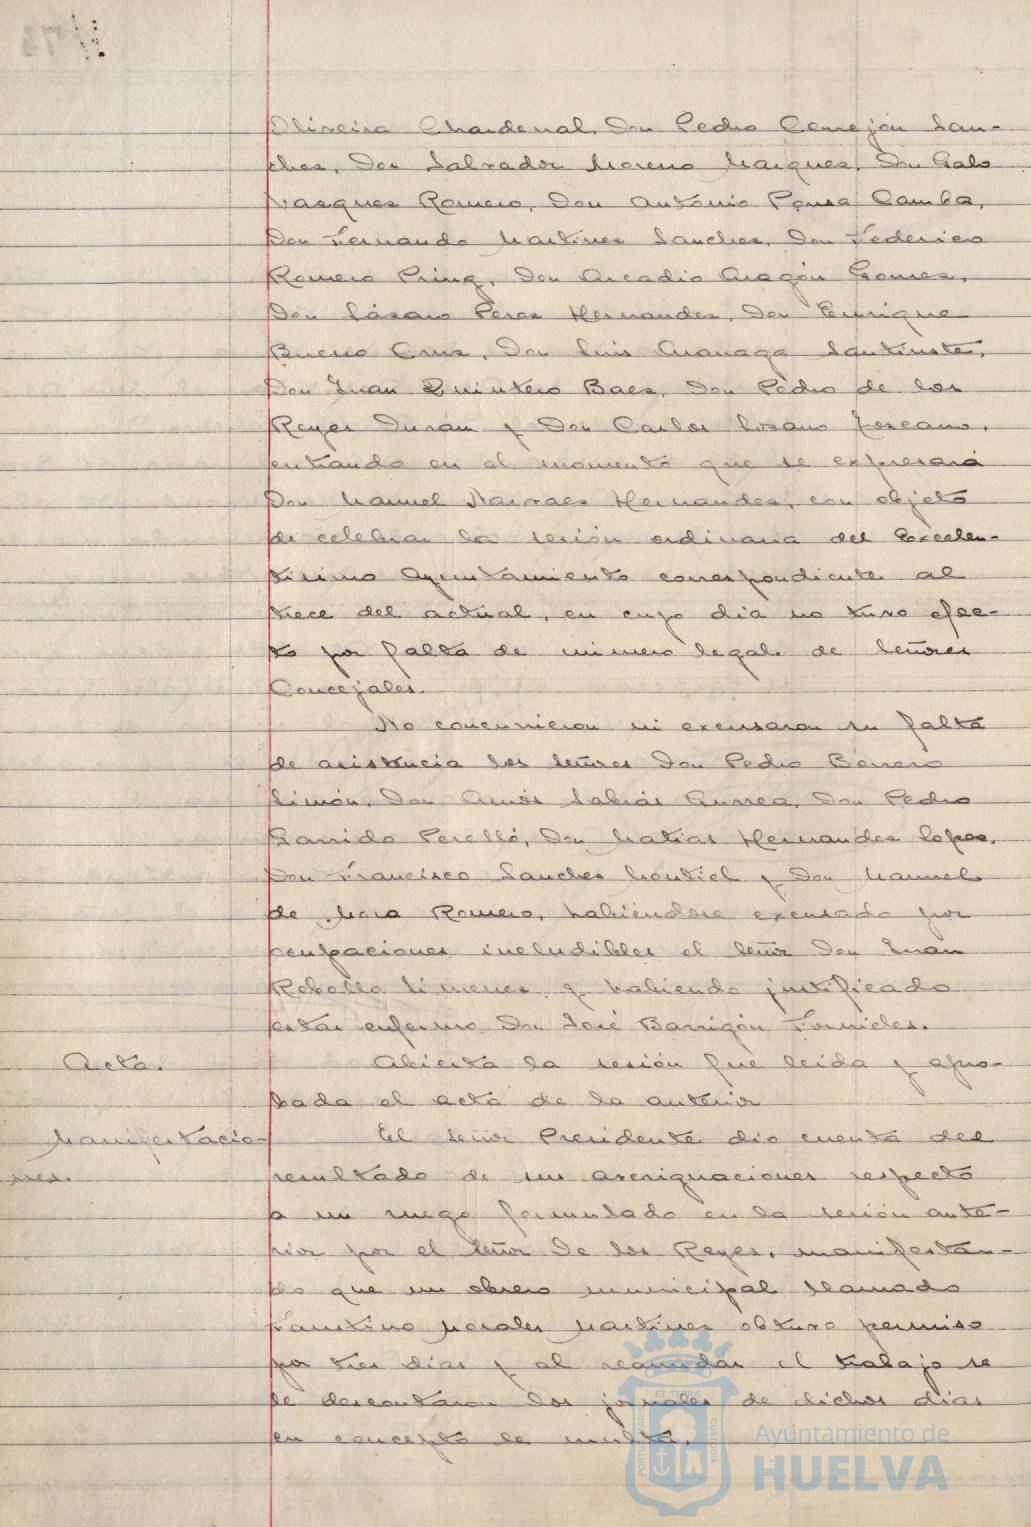 Oliveira Chardenal, Don Pedro Cerrejón San-
ches, Don Salvador Moreno Marques, Don Galo
Vasques Romero, Don Antonio Ponsa Camba,
Don Fernando Martines Sanches, Don Federico
Romero Pring, Don Arcadio Aragón Gomes,
Don Lásaro Peres Hernandes, Don Enrique
Bueno Crus, Don Luis Aranaga Santuste,
Don Juan Quintero Baes, Don Pedro de los
Reyes Durán y Don Carlos Losano Toscano,
entrando en el momento que se expresará
Don Manuel Narvaes Hernandes, con objeto
de celebrar la sesión ordinaria del Excelen-
tisimo Ayuntamiento correspondiente al
trece del actual, en cuyo dia no tuvo efec-
to por falta de número legal de Señores
Concejales.
No concurrieron ni excusaron su falta
de asistencia los señores Don Pedro Borrero
Limón, Don Amós Sabrás Gurrea, Don Pedro
Garrido Perelló, Don Matias Hernandes Lopes,
Don Francisco Sanches Montiel y Don Manuel
de Mora Romero, habiéndose excusado por
ocupaciones ineludibles el señor Don Juan
Rebollo Jimenes, y habiendo justificado
estar enfermo Don José Barrigón Fornieles.
Acta. Abierta la sesión fué leida y apro-
bada el acta de la anterior
Manifestacio- El señor Presidente dio cuenta del
nes. resultado de sus averiguaciones respecto
a un ruego formulado en la sesión ante-
rior por el señor De los Reyes, manifestan-
do que un obrero municipal llamado
Faustino Morales Martines obtuvo permiso
por tres dias y al reanudar el trabajo se
le descontaron los jornales de dichos dias
en concepto de multa.
Ayuntamiento de
HUELVA